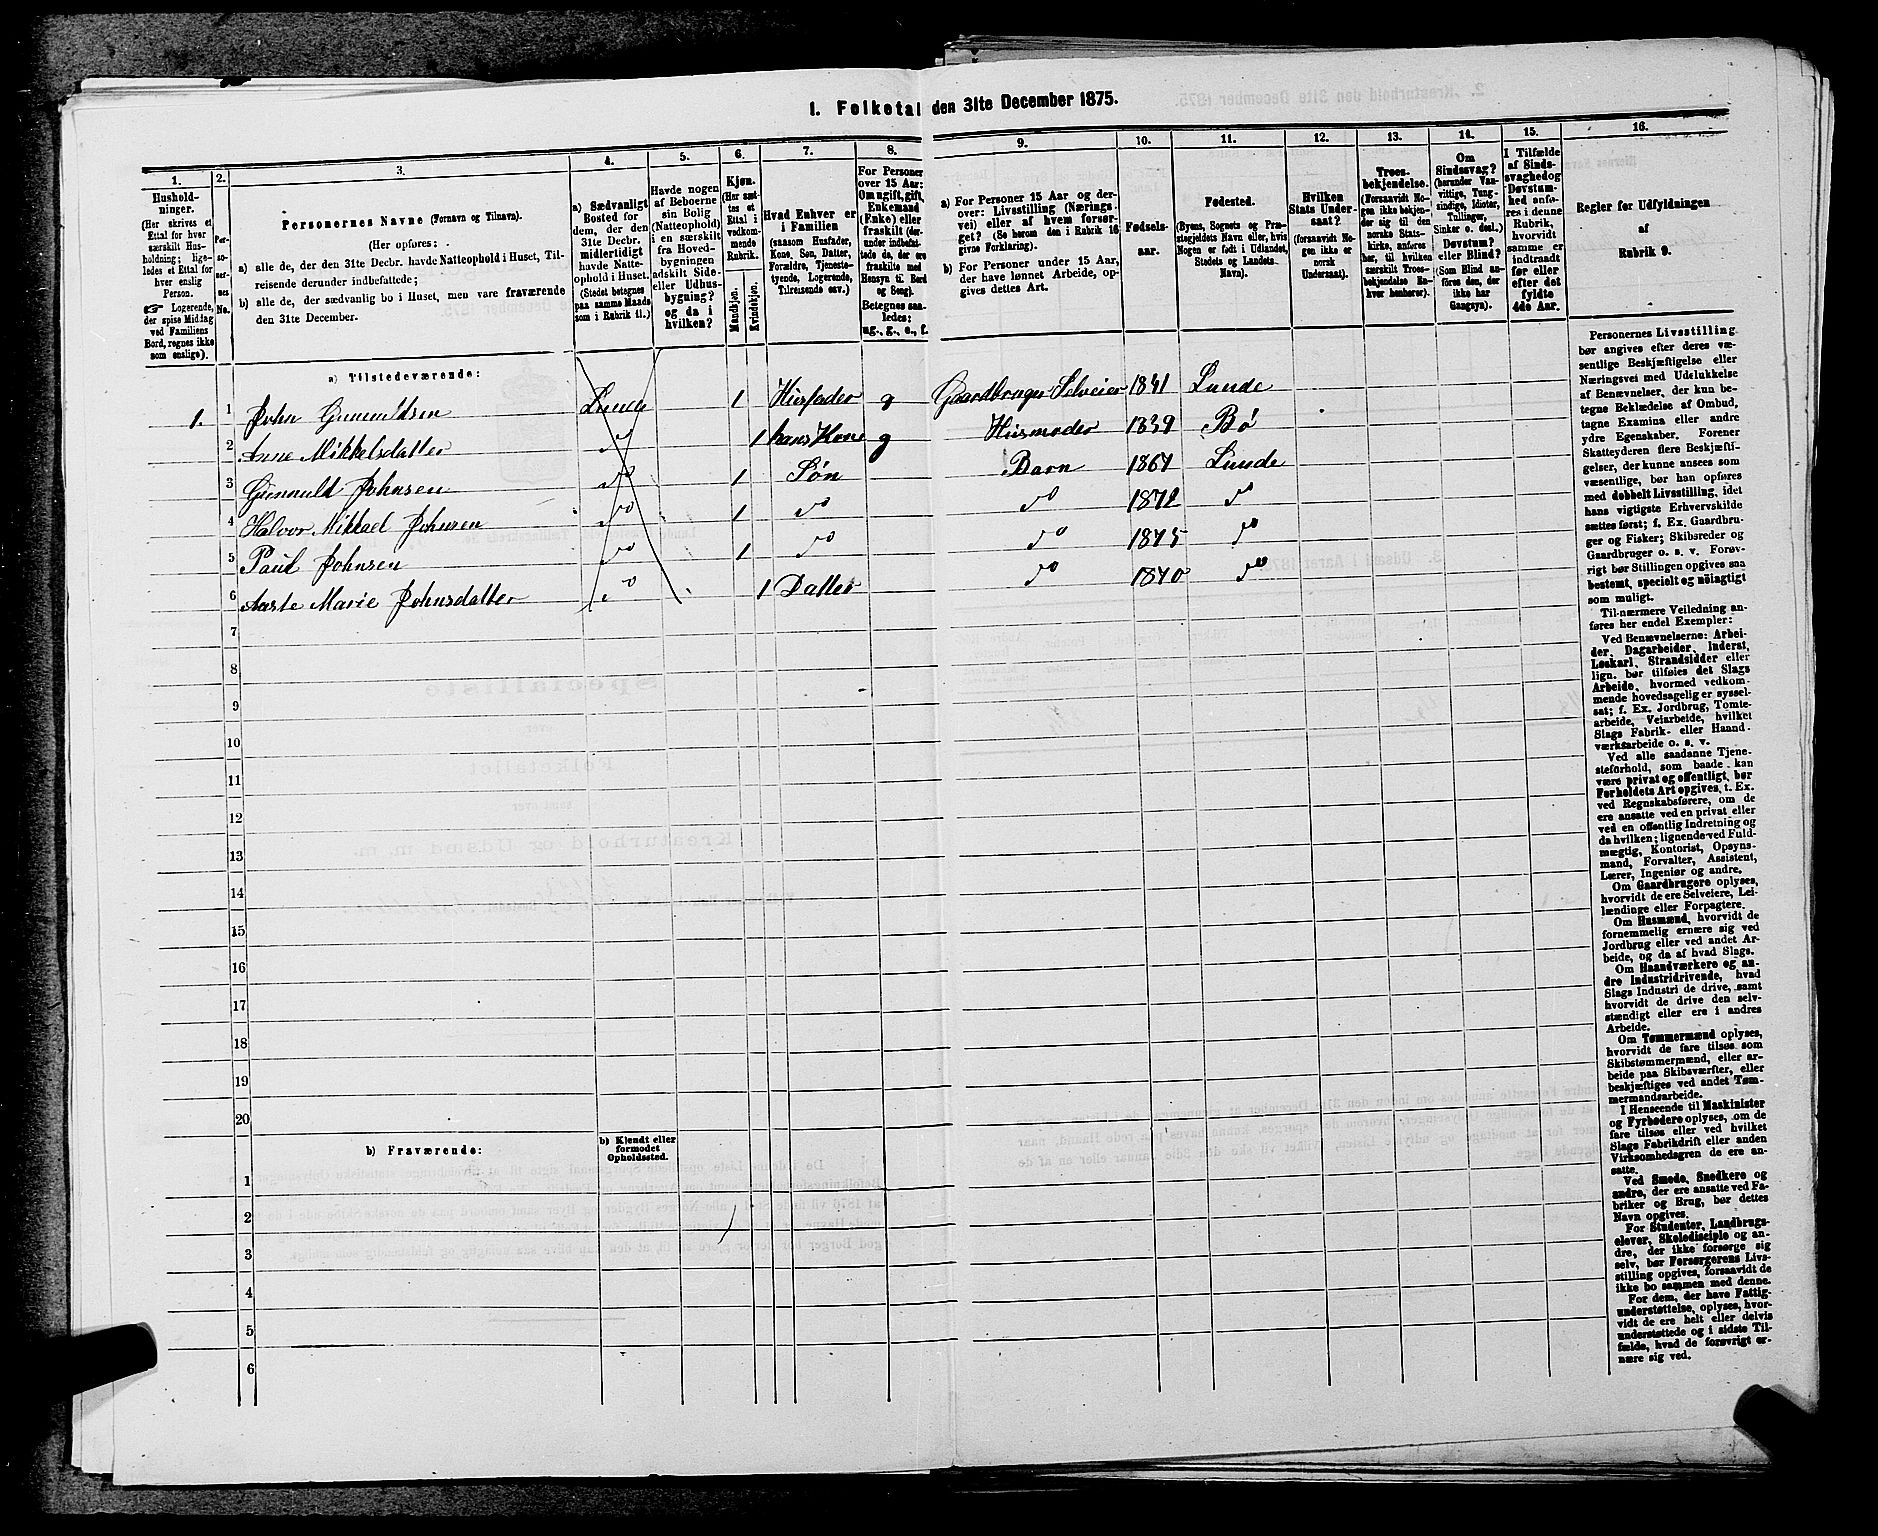 1. Folketal den 31te December 1875.
1.
2.
3.
4.
5.
6.
7.
8.
9.
10.
11.
12.
13.
14.
15.
16.
Hushold-
ninger.
(Her skrives et
Ettal for hver
særskilt Hus-
holdning; lige-
ledes et Ettal for
hver enslig
Person.
☞ Logerende,
der spise Middag
ved Familiens
Bord, regnes ikke
som enslige).
Per-
so-
ner-
nes
No.
Personernes Navne (Fornavn og Tilnavn).
(Her opføres:
a) alle de, der den 31te Decbr. havde Natteophold i Huset, Til-
reisende derunder indbefattede;
b) alle de, der sædvanlig bo i Huset, men vare fraværende
den 31te December.
a) Sædvanligt
Bosted for
dem, der den
31te Decbr.
midlertidigt
havde Natte-
ophold i Huset.
(Stedet betegnes
paa samme Maade
som i Rubrik 11.)
Havde nogen
af Beboerne
sin Bolig
(Natteophold)
i en særskilt
fra Hoved-
bygningen
adskilt Side-
eller Udhus-
bygning?
og da i
hvilken?
Kjøn.
(Her sæt-
tes et
Ettal i
vedkom-
mende
Rubrik.
Mandkjøn.
Kvindekjøn.
Hvad Enhver er
i Familien
(saasom Husfader,
Kone, Søn, Datter,
Forældre, Tjeneste-
tyende, Logerende,
Tilreisende osv.)
For Personer
over 15 Aar:
Om ugift, gift,
Enkemand
(Enke) eller
fraskilt (der-
under indbefat-
tede de, der ere
fraskilte med
Hensyn til Bord
og Seng).
Betegnes saa-
ledes:
ug., g., e., f.
a) For Personer 15 Aar og der-
over: Livsstilling (Nærings-
vei) eller af hvem forsør-
get? (Se herom den i Rubrik 16
givne Forklaring).
b) For Personer under 15 Aar,
der have lønnet Arbeide, op-
gives dettes Art.
Fødsels-
aar.
Fødested.
(Byens, Sognets og Præ-
stegjeldets Navn eller, hvis
Nogen er født i Udlandet,
Stedets og Landets
Navn).
Hvilken
Stats Under-
saat?
(forsaavidt No-
gen ikke er
norsk
Undersaat).
Troes-
bekjendelse.
(Forsaavidt No-
gen ikke bekjen-
der sig til den
norske Stats-
kirke, anføres
her, til hvilken
særskilt Troes-
bekjendelse En-
hver henhører).
Om
Sindssvag?
(herunder Van-
vittige, Tung-
sindige, Idioter,
Tullinger,
Sinker o. desl.)
Døvstum?
eller Blind?
(Som Blind an-
føres den, der
ikke har
Gangsyn).
I Tilfælde
af Sinds-
svaghed og
Døvstum-
hed anfø-
res i denne
Rubrik,
hvorvidt
samme er
indtraadt
før eller
efter det
fyldte
4de Aar.
Regler for Udfyldningen
af
Rubrik 9.
a) Tilstedeværende:
1. 1 John Gunnuldsen Lunde 1 Husfader g Gaardbruger Selveier 1841 Lunde
2 Anne Mikkelsdatter do 1 hans Kone g Husmoder 1839 Bø
3 Gunnuld Johnsen do 1 Søn Barn 1867 Lunde
4 Halvor Mikkael Johnsen do 1 do do 1872 do
5 Paul Johnsen do 1 do do 1875 do
6 Aaste Marie Johnsdatter do 1 Datter do 1870 do
7
8
9
10
11
12
13
14
15
16
17
18
19
20
b) Fraværende:
b) Kjendt eller
formodet
Opholdssted.
1
2
3
4
5
6
Personernes Livsstilling
bør angives efter deres væ-
sentlige Beskjæftigelse eller
Næringsvei med Udelukkelse
af Benævnelser, der kun be-
tegne Beklædelse af Ombud,
tagne Examina eller andre
ydre Egenskaber. Forener
Skatteyderen flere Beskjæfti-
gelser, der kunne ansees som
væsentlige, bør han opføres
med dobbelt Livsstilling, idet
hans vigtigste Erhvervskilde
sættes først; f. Ex. Gaardbru-
ger og Fisker; Skibsreder og
Gaardbruger o. s. v. Forøv-
rigt bør Stillingen opgives saa
bestemt, specielt og nøiagtigt
som muligt.
Til nærmere Veiledning an-
føres her endel Exempler:
Ved Benævnelserne: Arbei-
der, Dagarbeider, Inderst,
Løskarl, Strandsidder eller
lign. bør tilføies det Slags
Arbeide, hvormed vedkom-
mende hovedsagelig er syssel-
sat; f. Ex. Jordbrug, Tomte-
arbeide, Veiarbeide, hvilket
Slags Fabrik- eller Haand-
værksarbeide o. s. v.
Ved alle saadanne Tjene-
steforhold, som baade kan
være privat og offentligt, bør
Forholdets Art opgives, t. Ex.
ved Regnskabsførere, om de
ere ansatte ved en privat eller
ved en offentlig Indretning og
da hvilken; lignende ved Fuld-
mægtig, Kontorist, Opsyns-
mand, Forvalter, Assistent,
Lærer, Ingeniør og andre.
Om Gaardbrugere oplyses,
hvorvidt de ere Selveiere, Lei-
lændinge eller Forpagtere.
Om Husmænd, hvorvidt de
fornemmelig ernære sig ved
Jordbrug eller ved andet Ar-
beide, og da af hvad Slags.
Om Haandværkere og an-
dre Industridrivende, hvad
Slags Industri de drive, samt
hvorvidt de drive den selv-
stændigt eller ere i andres
Arbeide.
Om Tømmermænd oplyses,
hvorvidt de fare tilsøs som
Skibstømmermænd, eller ar-
beide paa Skibsværfter, eller
beskjæftiges ved andet Tøm-
mermandsarbeide.
I Henseende til Maskinister
og Fyrbødere oplyses, om de
fare tilsøs eller ved hvilket
Slags Fabrikdrift eller anden
Virksomhedsgren de ere an-
satte.
Ved Smede, Snedkere og
andre, der ere ansatte ved Fa-
briker og Brug, bør dettes
Navn opgives.
For Studenter, Landbrugs-
elever, Skoledisciple og an-
dre, der ikke forsørge sig
selv, bør Forsørgerens Livs-
stilling opgives, forsaavidt de
ikke bo sammen med denne.
For dem, der have Fattig-
understøttelse, oplyses, hvor-
vidt de ere helt eller delvis
understøttede og i sidste Til-
fælde, hvad de forøvrigt er-
nære sig ved.